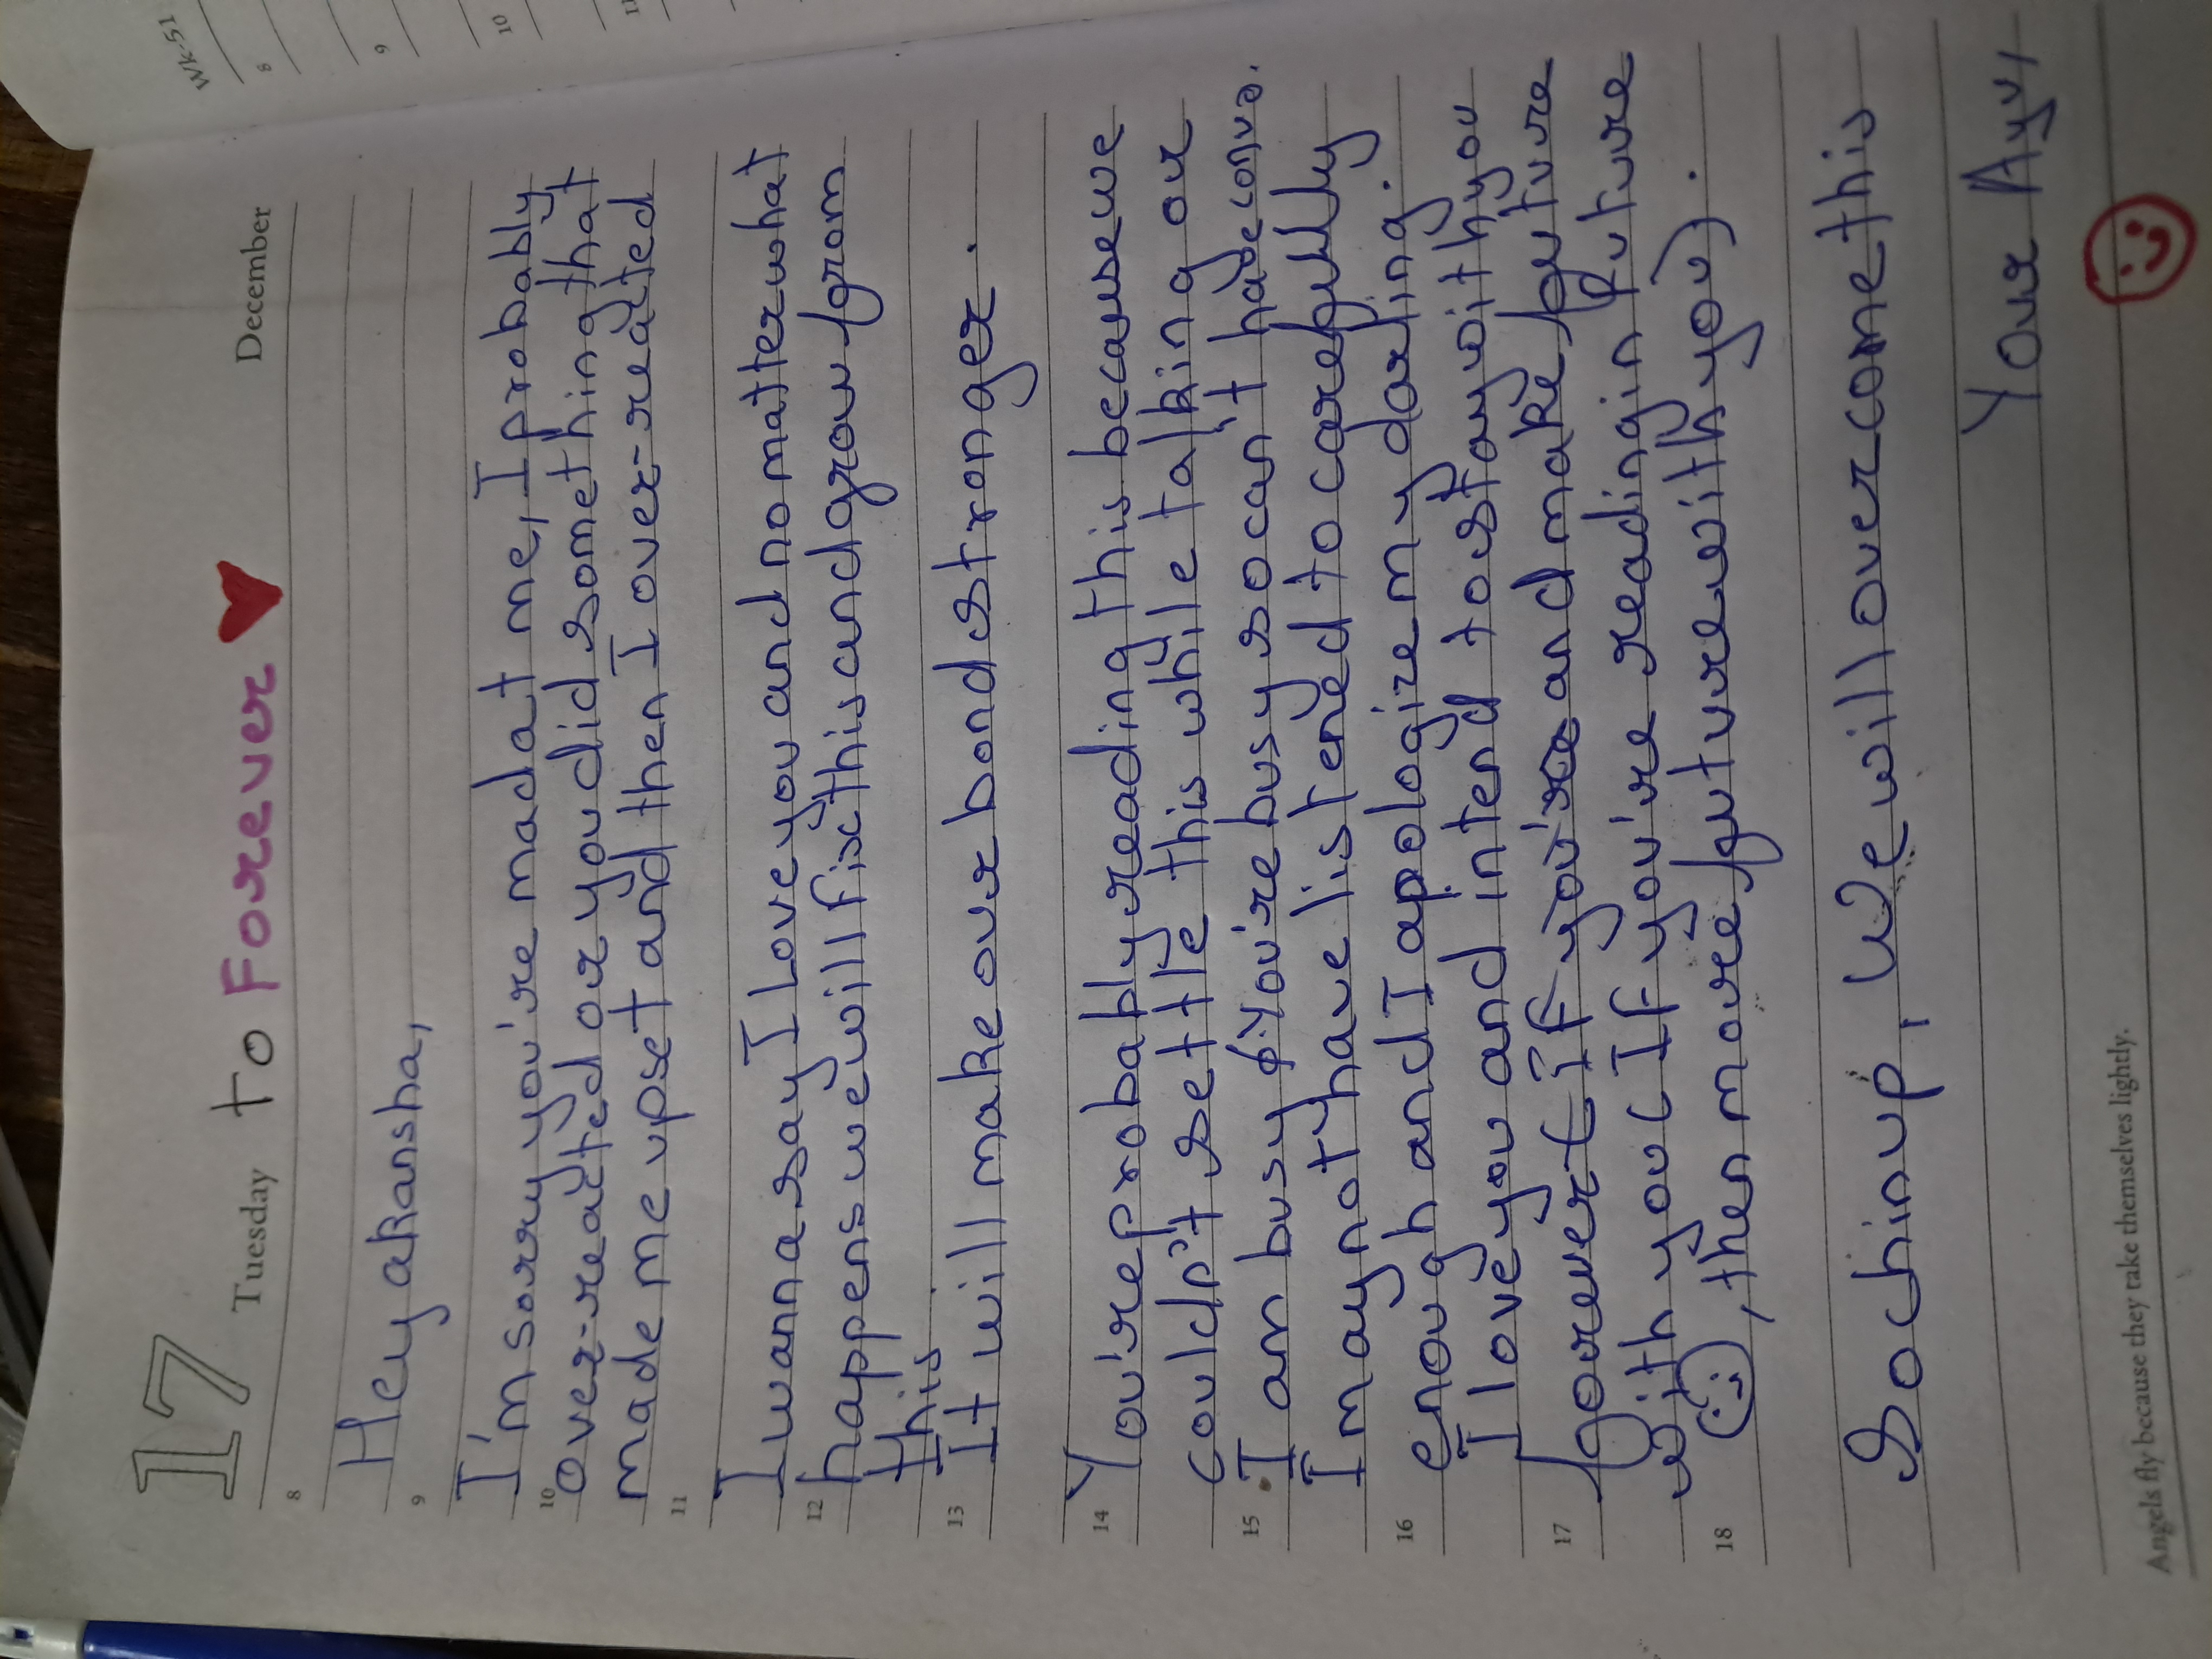 17 Tuesday To Forever ♥ December
8
9 Hey akansha,
I'm sorry you're mad at me, I probably
10 over-reacted or you did something that
made me upset and then I over-reacted
11
I wanna say I Love you and no matter what
12 happens we will fix this and grow from
this
13 It will make our bond stronger.
14 You're probably reading this because we
could't settle this while talking or
15 I am busy / You're busy so can't have convo.
I may not have listened to carefully
16 enough and I apologize my darling.
I love you and intend to stay with you
17 forever (if you're and make future
with you (If you're reading in future
18 ☺, then more future with you).
So chin up, We will overcome this
Your Ayu,
Angels fly because they take themselves lightly.
Wk-51
8
9
10
11